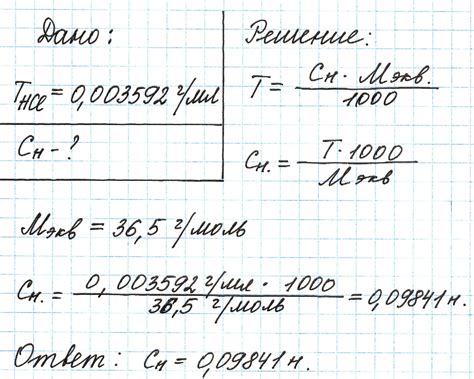 Дано:
T_HCl = 0,003592 г/мл
Сн - ?
Решение:
T = Сн · Мэкв. / 1000
Сн. = T · 1000 / Мэкв
Мэкв = 36,5 г/моль
Сн. = 0,003592 г/мл · 1000 / 36,5 г/моль = 0,09841 н.
Ответ: Сн = 0,09841 н.